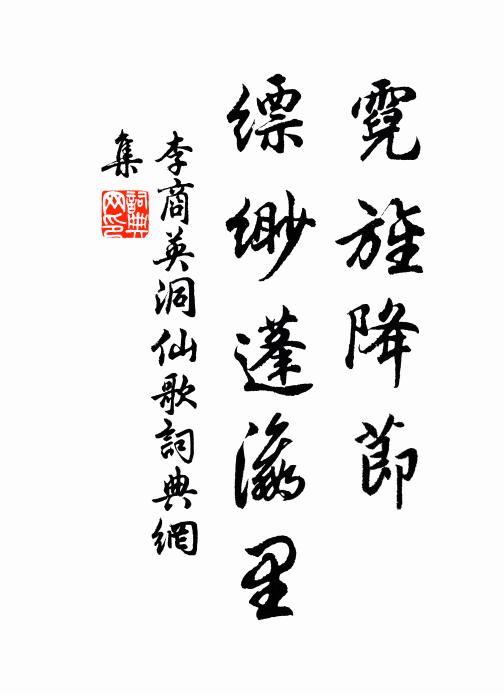 霓旌降節
縹緲蓬瀛里
李商英洞仙歌詞典網
集
詞典
网印